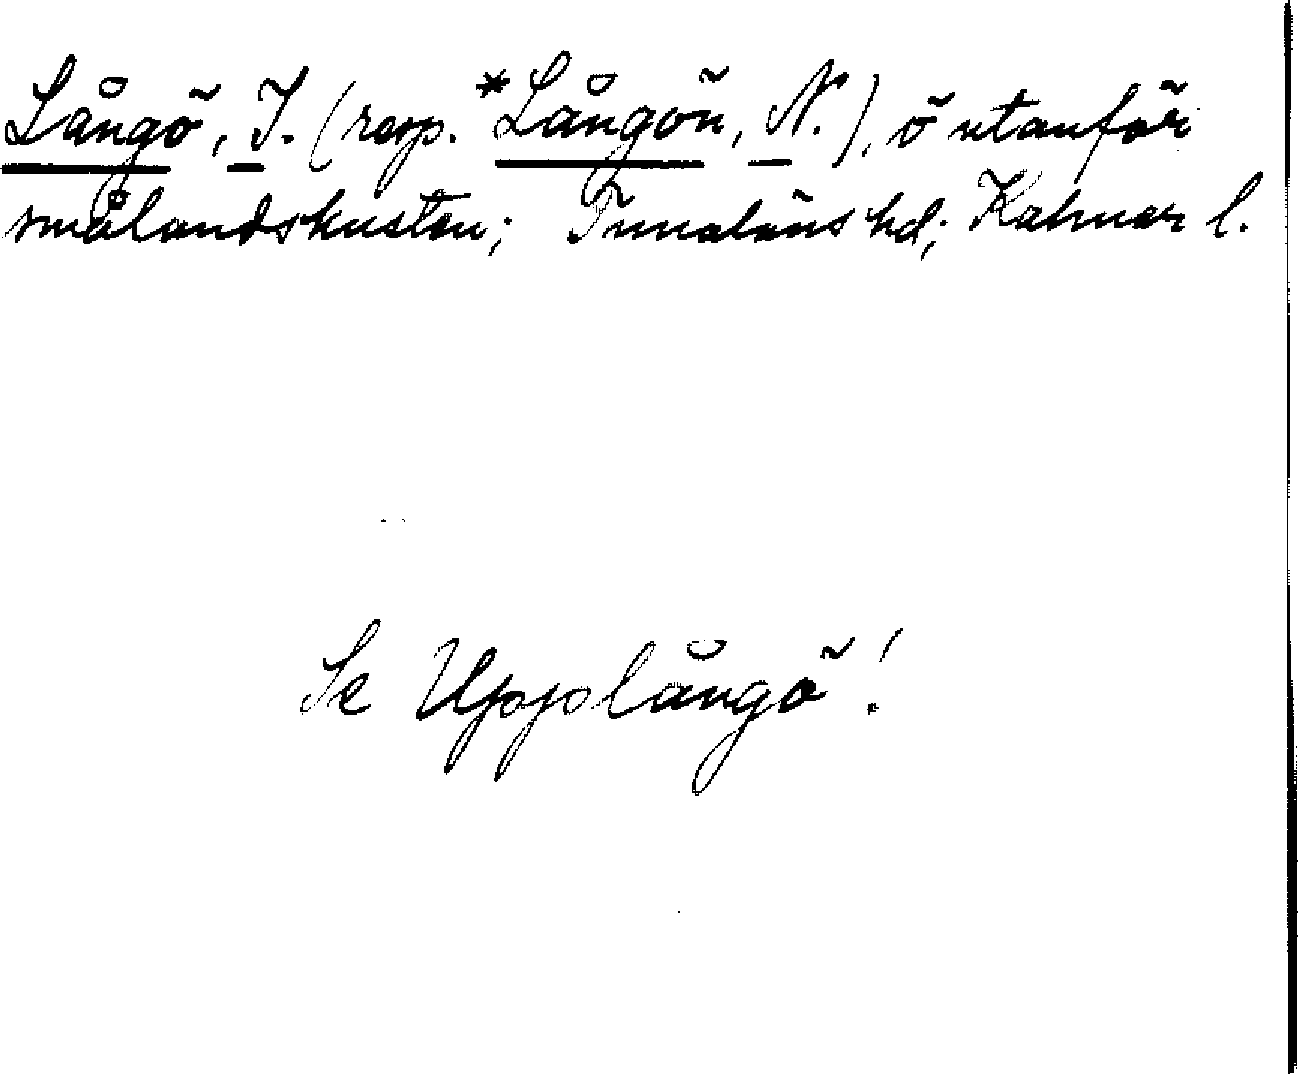 Långö, I. (resp. *Långön, N.), ö utanför
smålandskusten; Tunaläns hd; Kalmar l.
Se Upplångö!